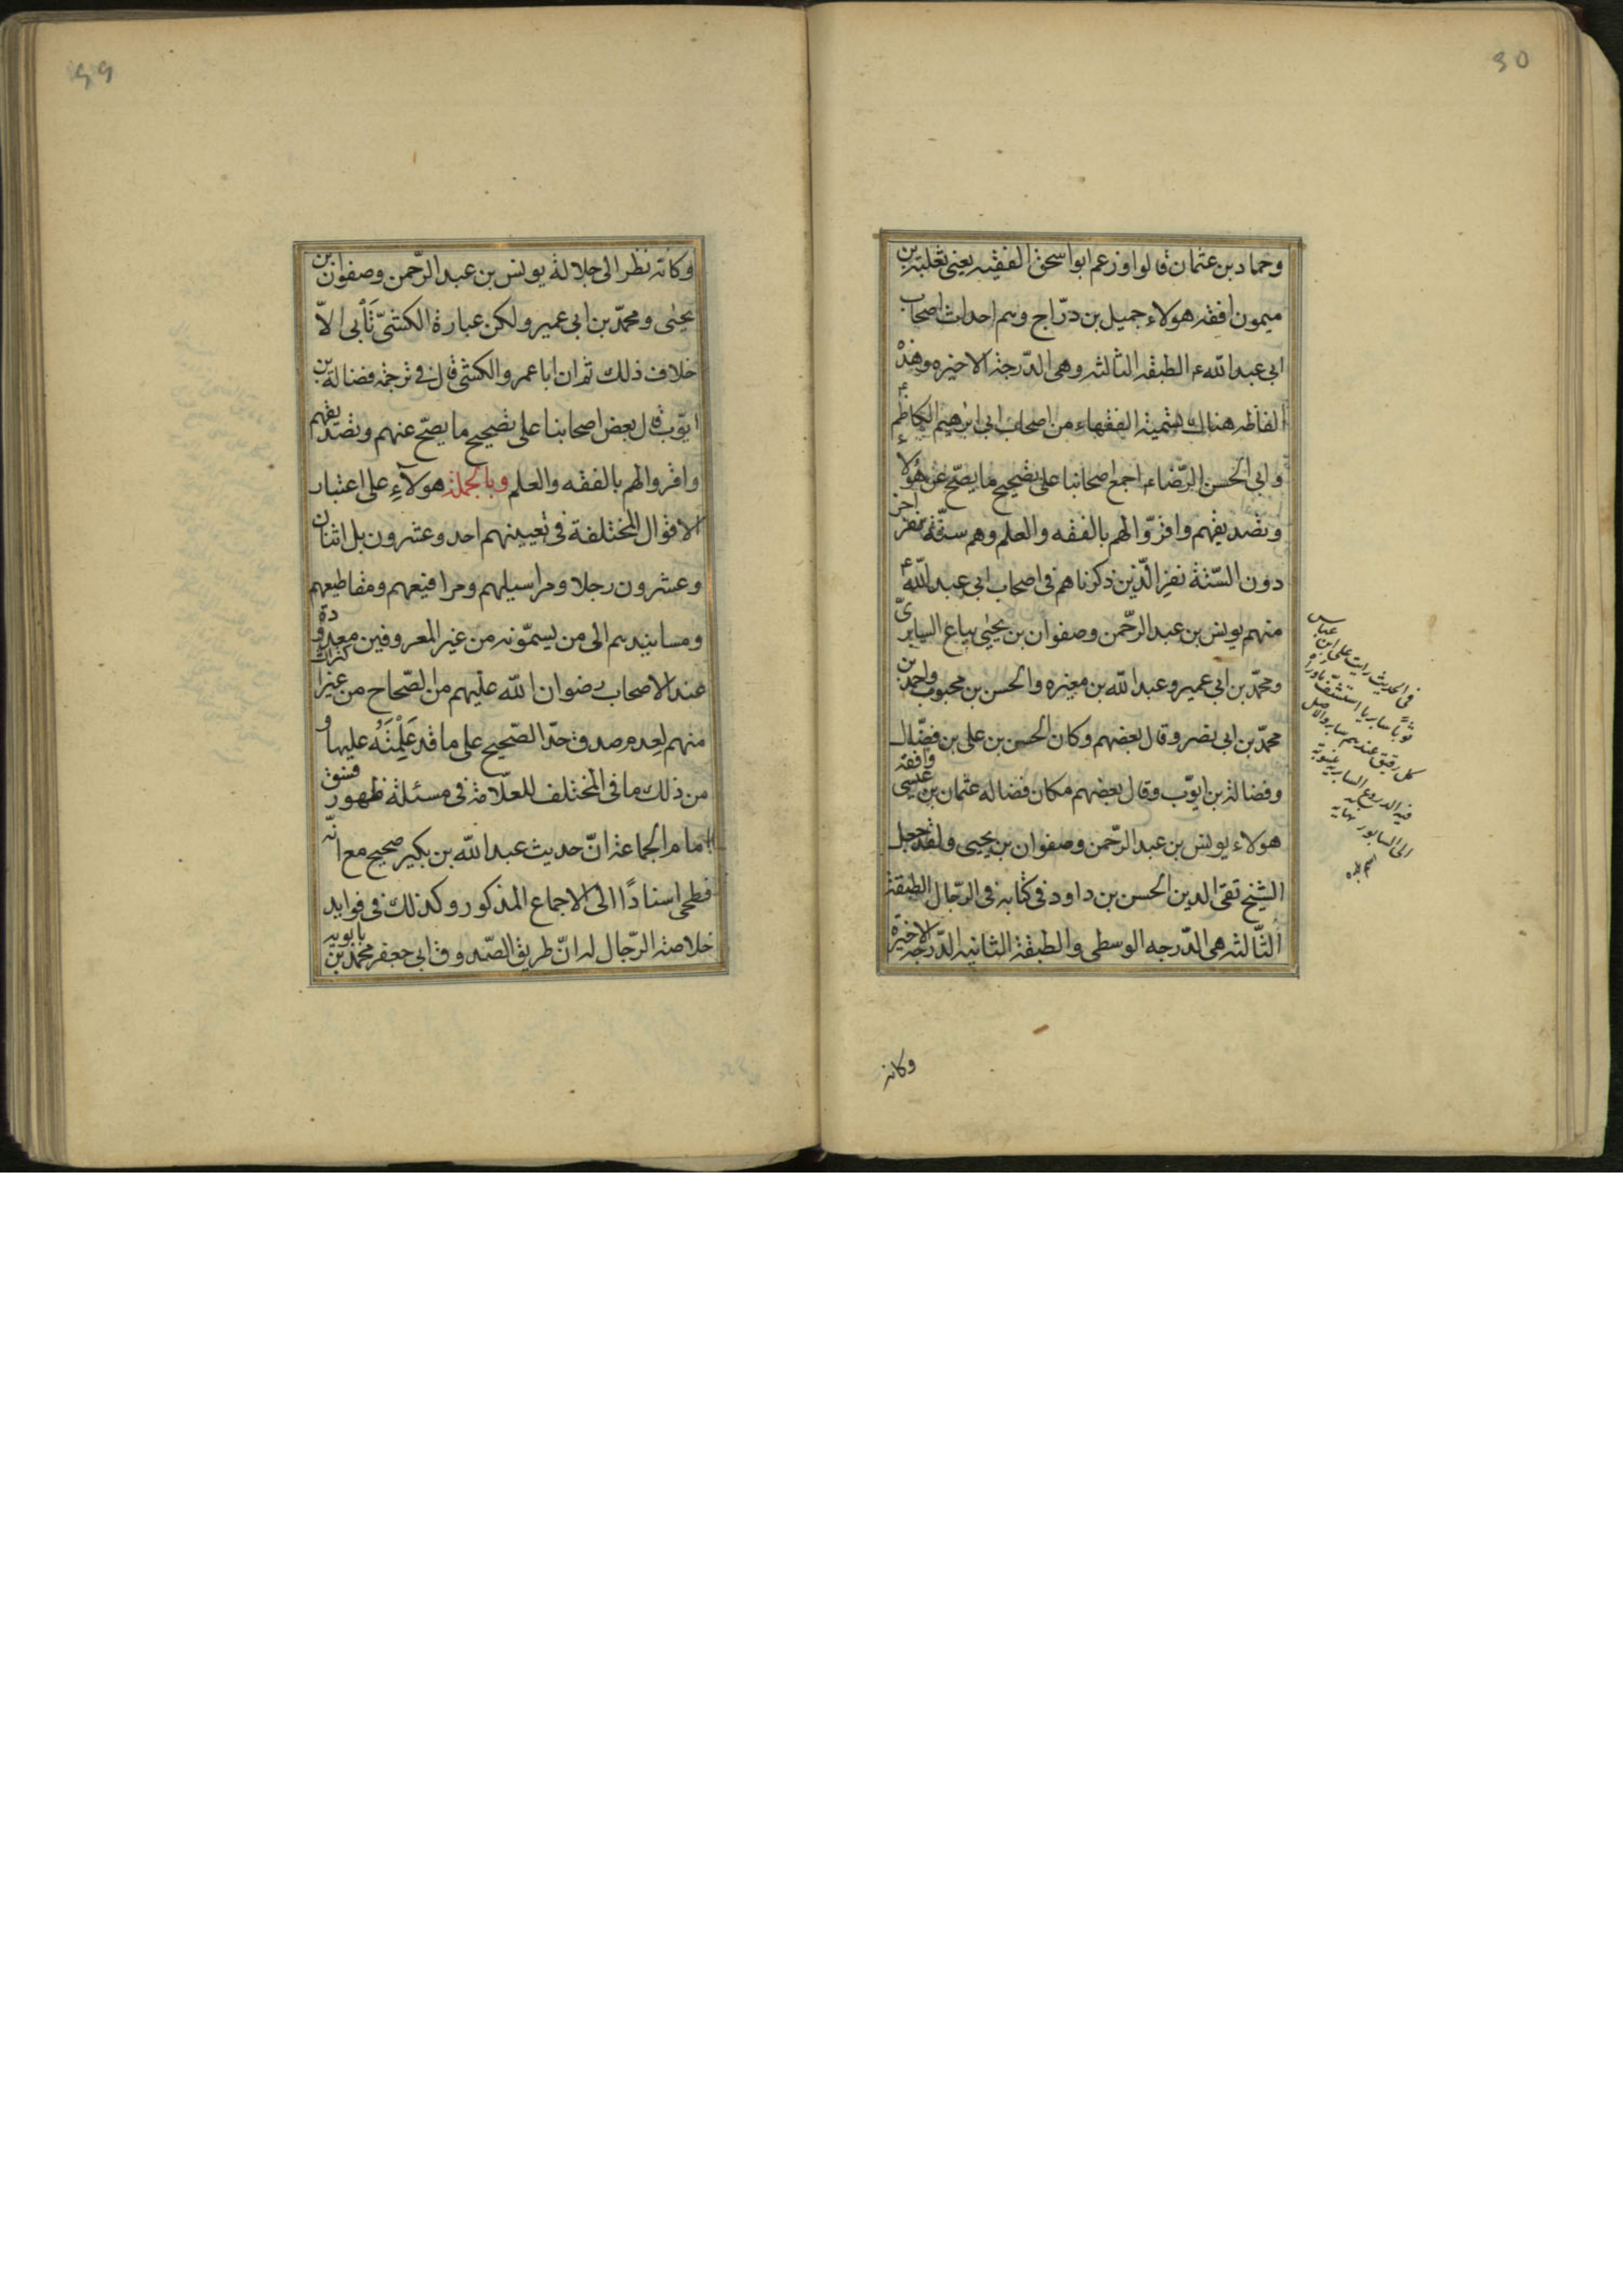 وحماد بن عثمان قالوا وزعم ابو اسحق الفقيه يعنى ثعلبة بن
ميمون افقه هولاء جميل بن درّاج وهم احداث اصحاب
ابى عبد الله ع الطبقه الثالثه وهى الدّرجة الاخيره وهذه
الفاظه هناك تسمية الفقهاء من اصحاب ابى ابرهيم الكاظم ع
وابى الحسن الرّضا ع اجمع اصحابنا على تصحيح ما يصحّ عن هؤلاء
وتصديقهم واقرّوا لهم بالفقه والعلم وهم ستّة نفر اخر
دون السّتة نفر الّذين ذكرناهم فى اصحاب ابى عبد الله ع
منهم يونس بن عبد الرّحمن وصفوان بن يحيٰى بياع السابرىّ
ومحمّد بن ابى عمير وعبد الله بن مغيره والحسن بن محبوب واحمد بن
محمّد بن ابى نصر وقال بعضهم وكان الحسن بن على بن فضّال
وفضالة بن ايّوب وقال بعضهم مكان فضاله عثمان بن عيسى وافقه
هولاء يونس بن عبد الرّحمن وصفوان بن يحيى ولقد جعل
الشيخ تقى الدين الحسن بن داود فى كتابه فى الرّجال الطبقة
الثّالثه هى الدّرجه الوسطى والطبقة الثانيه الدّرجة الاخيرة
فى الحديث رايت على ابن عباس
ثوباً سابريا استشفّ ماوراءه
كل رقيق عندهم سابرى والاصل
فيه الدروع السابرية منسوبة
الى السابور نهايه
وكانه
90
وكانه نظر الى جلالة يونس بن عبد الرّحمن وصفوان بن
يحيٰى ومحمّد بن ابى عمير ولكن عبارة الكشىّ تَأبى الاّ
خلاف ذلك ثم ان ابا عمرو الكشى قال فى ترجمة فضالة بن
ايّوب قال بعض اصحابنا على تصحيح ما يصحّ عنهم وتصديقهم
واقروا لهم بالفقه والعلم وبالجملة هولآءِ على اعتبار
الاقوال المختلفة فى تعيينهم احد وعشرون بل اثنان
وعشرون رجلا ومراسيلهم ومرافيعهم ومقاطيعهم
ومسانيدهم الى من يسمّونه من غير المعروفين معدودة
عند الاصحاب رضوان الله عليهم من الصّحاح من غير اكتراث
منهم لعدم صدق حدّ الصّحيح على ما قد عَلِمْتَه عليها و
من ذلك ما فى المختلف للعلّامة فى مسئلة ظهور فسق
امام الجماعة انّ حديث عبد الله بن بكير صحيح مع انّه
فطحى اسنادًا الى الاجماع المذكور وكذلك فى فوايد
خلاصة الرّجال له انّ طريق الصّدوق ابى جعفر محمّد بن بابويه